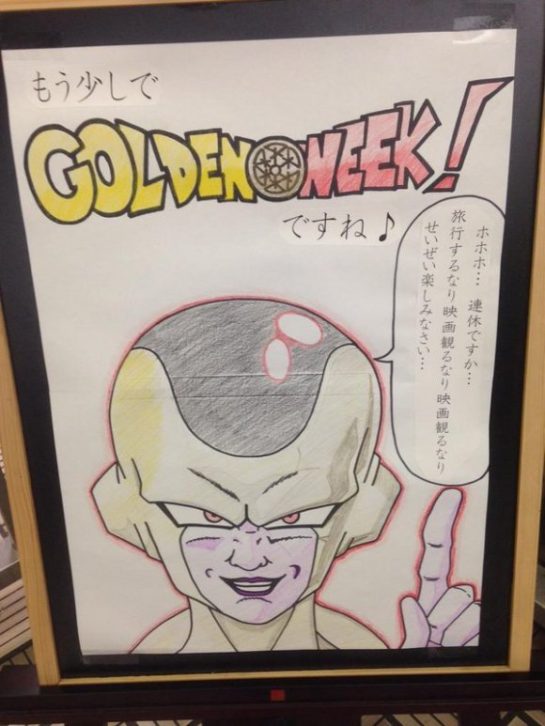 もう少しで
GOLDEN WEEK!
ですね♪
ホホホ… 連休ですか…
旅行するなり映画観るなり映画観るなり
せいぜい楽しみなさい…